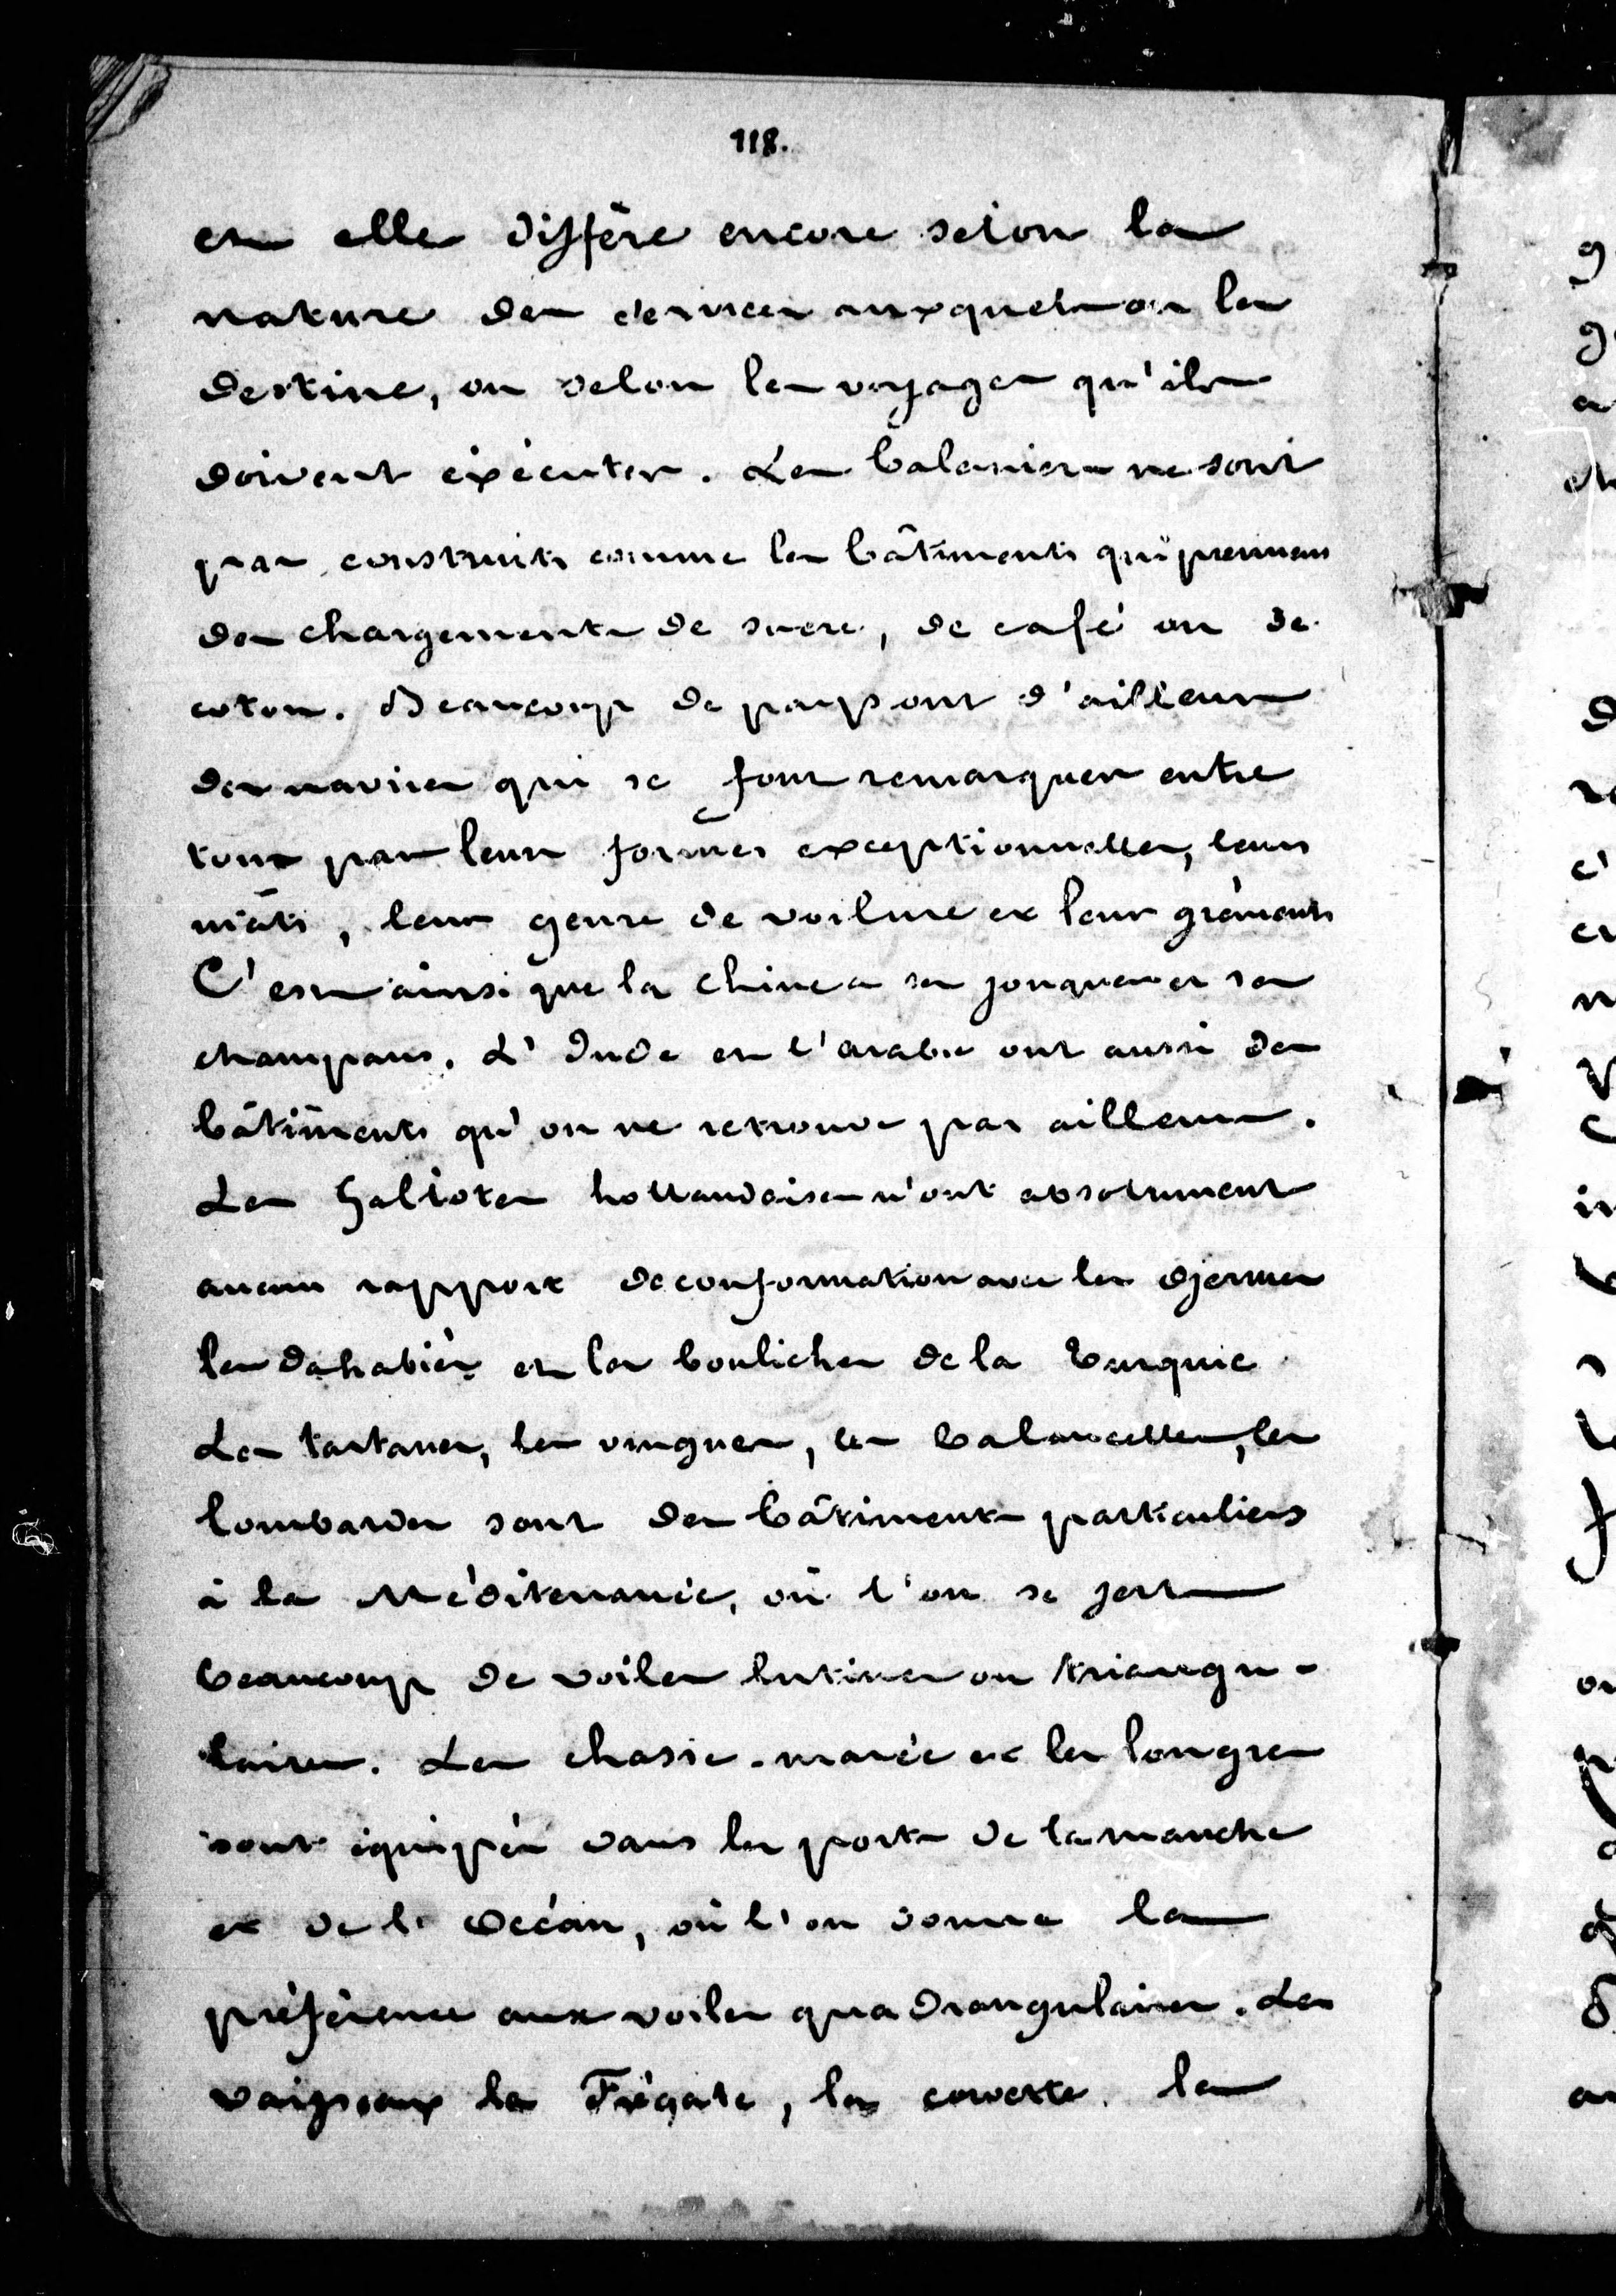 118.
et elle diffère encore selon la
nature des services auxquels on les
destine, ou selon les voyages qu'ils
doivent éxécuter. Les baleniers ne sont
pas construits comme les bâtiments qui prennent
des chargements de sucre, de café ou de
coton. Beaucoup de pays ont d'ailleurs
des navires qui se font remarquer entre
tous par leurs formes exceptionnelles, leurs
mâts, leur genre de voilure et leur gréments
C'est ainsi que la chine a ses jonques et ses
champans. L'Inde et l'arabie ont aussi des
bâtiments qu'on ne retrouve pas ailleurs.
Les Galiotes hollandaises n'ont absolument
aucun rapport de conformation avec les djermes
les dahabiés et les bouliches de la turquie
Les tartanes, les , les balancelles, les
lombardes sont des bâtiments particuliers
à la Méditerranée, où l'on se sert
beaucoup de voiles latines ou triangu-
laires. Les chasse-marée et les lougres
sont équipés dans les ports de la manche
et de l'Océan, où l'on donne la
préférence aux voiles quadrangulaires. Les
vaisseaux la Frégate, la corvette. le